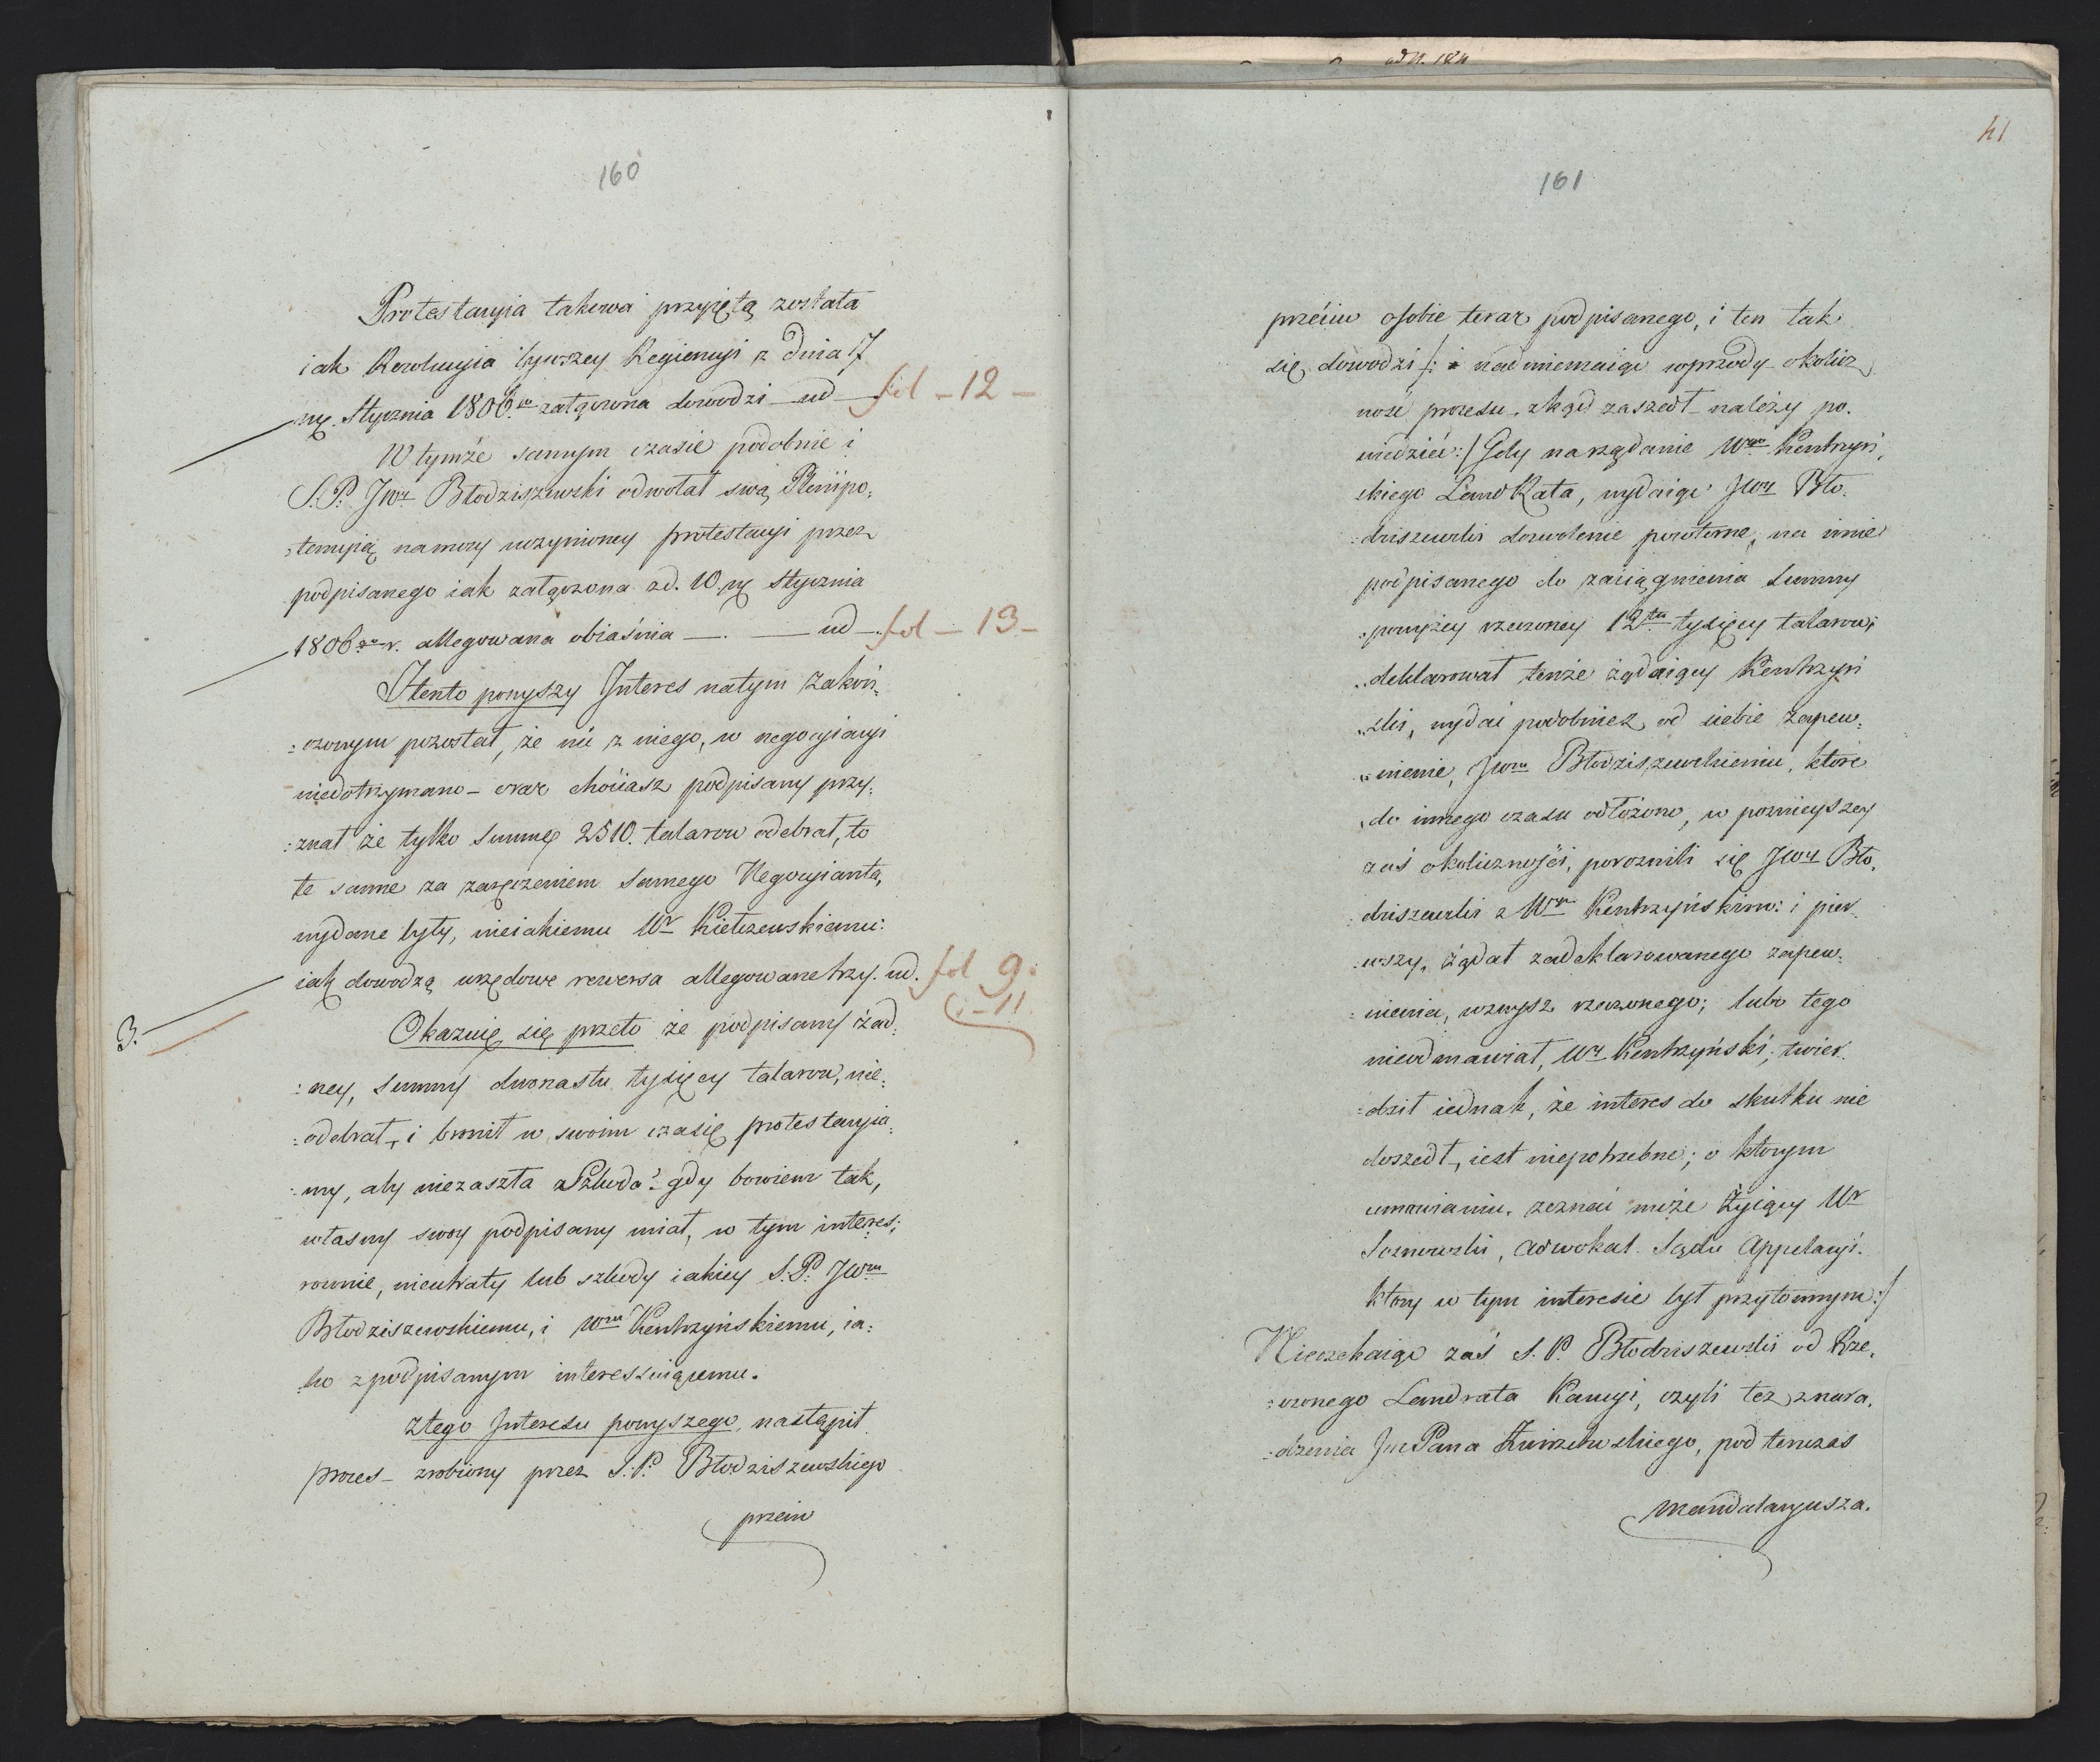 160
Protestacyia takowa przyiętą została
iak Rezolucyia byłszey Regiencyi z dnia 17
ng. Stycznia 1806.go załączona dowodzi — ud — fol – 12 –
W tymże samym czasie podobnie i
S.P. JWr Błodziszewski odwołał swą Plenipo:
:tencyią namocy uczynioney protestacyi przez
podpisanego iak załączona z d. 10 ng Stycznia
1806go r. allegowana obiaśnia — . — ud — fol – 13 –
Itento powyszy Interes natym zakoń:
:czonym pozostał, że nic z niego, w negocyiacyi
niedotrzymano – oraz chociasz podpisany przy:
:znał że tylko Summę 2510. talarow odebrał, to
te same za zaręczeniem Samego Negocyianta,
wydane były, nieiakiemu Wr Kietczewskiemu:
iak dowodzą urzędowe rewersa allegowane trzy. ud. fol 9.
i – 11
3.
Okazuię się przeto że podpisany żad:
:ney, Summy dwonastu tysięcy talarow, nie:
:odebrał, i bronił w swoim czasie protestacyia:
:my, aby niezaszła Szkoda: gdy bowiem tak,
własny swoy podpisany miał, w tym interes:
rownie, nieutraty lub szkody iakiey S.P. JWm
Błodziszewskiemu, i Wmu Kentrzynskiemu, ia:
:ko z podpisanym interessuiącemu.
Ztego Interesu powyszego, nastąpił
proces – zrobiony przez S.P. Błodziszewskiego
przeciw
od N. 184
41
161
przeciw osobie teraz podpisanego, i ten tak
się dowodzi /: nadmieniaiąc wprzody okolicz
ność procesu, zkąd zaszedł należy po.
wiedzieć :/ Gdy na rządanie Wgo Kentrzyń.
skiego LandRata, wydaiąc JWr Bło.
:dziszewski dozwolenie powtorne, na imie
podpisanego do zaciągnienia Summy
:powyżey rzeczoney 12tu tysięcy talarow,
„deklarował tenże żądaiący Kentrzyń
„ski, wydać podobniez od siebie zapew:
„nienie, JWmu Błodziszewskiemu, ktore
„do innego czasu odłożono, w poznieyszey
zaś okoliczności, poroznili się JWr Bło.
:dziszewski z Wym Kentrzyńskim: i pier.
:wszy, żądał zadeklarowanego zapew.
:nienia, wzwysz rzeczonego; lubo tego
nieodmawiał, Wr Kentrzyński; twier.
:dził iednak, że interes do skutku nie
doszedł, iest niepotrzebne; o ktorym
umowianiu, zeznać może Żyiący Wr
Sosnowski, Adwokat Sądu Appelacyi.
ktory w tym interesie był przytomnym :/
Nieczekaiąc zaś S.P. Błodziszewski od Rze.
:czonego Landrata Kaucyi, czyli tez z nara.
:dzenia JmPana Zwirzchowskiego, pod tenczas
Mandataryusza.